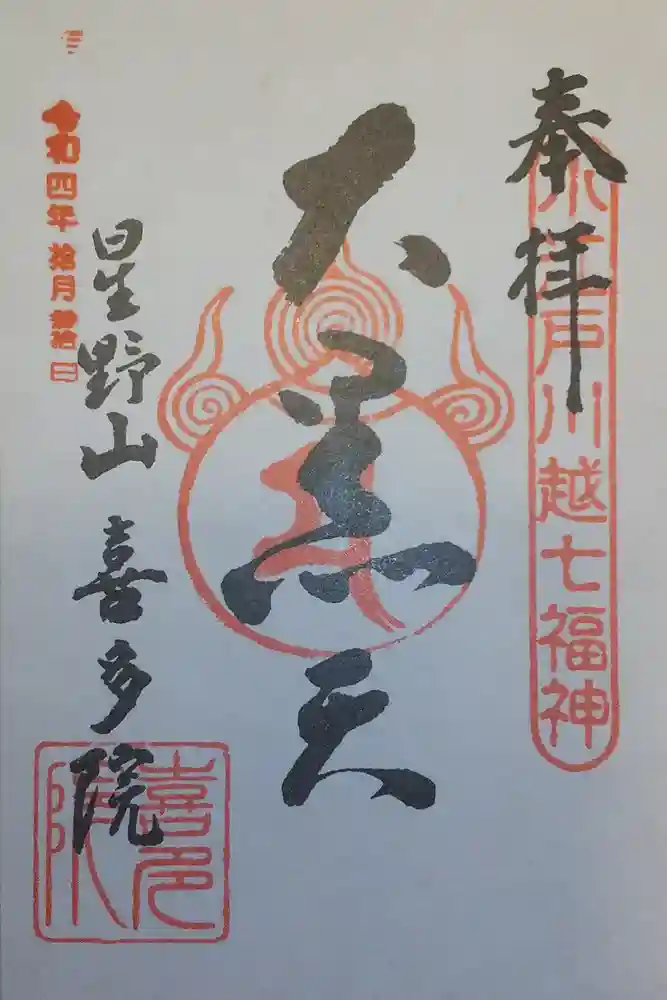 奉拝
小江戸川越七福神
大黒天
星野山 喜多院
令和四年 拾月
喜多院